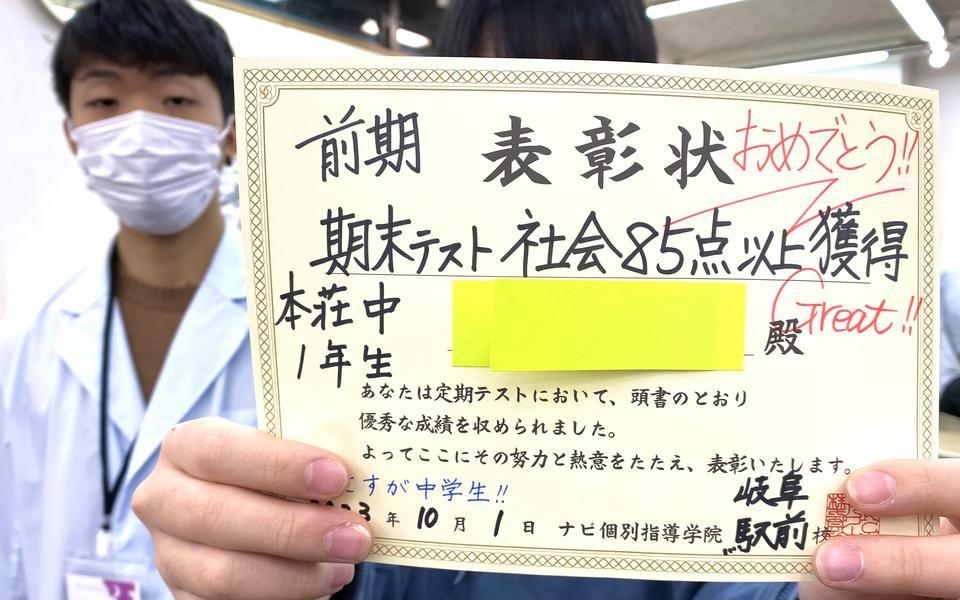 前期 表彰状 おめでとう!!
期末テスト 社会85点以上獲得
Great!!
本荘中
1年生
殿
あなたは定期テストにおいて、頭書のとおり
優秀な成績を収められました。
よってここにその努力と熱意をたたえ、表彰いたします。
すが中学生!!
3年10月1日 ナビ個別指導学院 岐阜駅前校